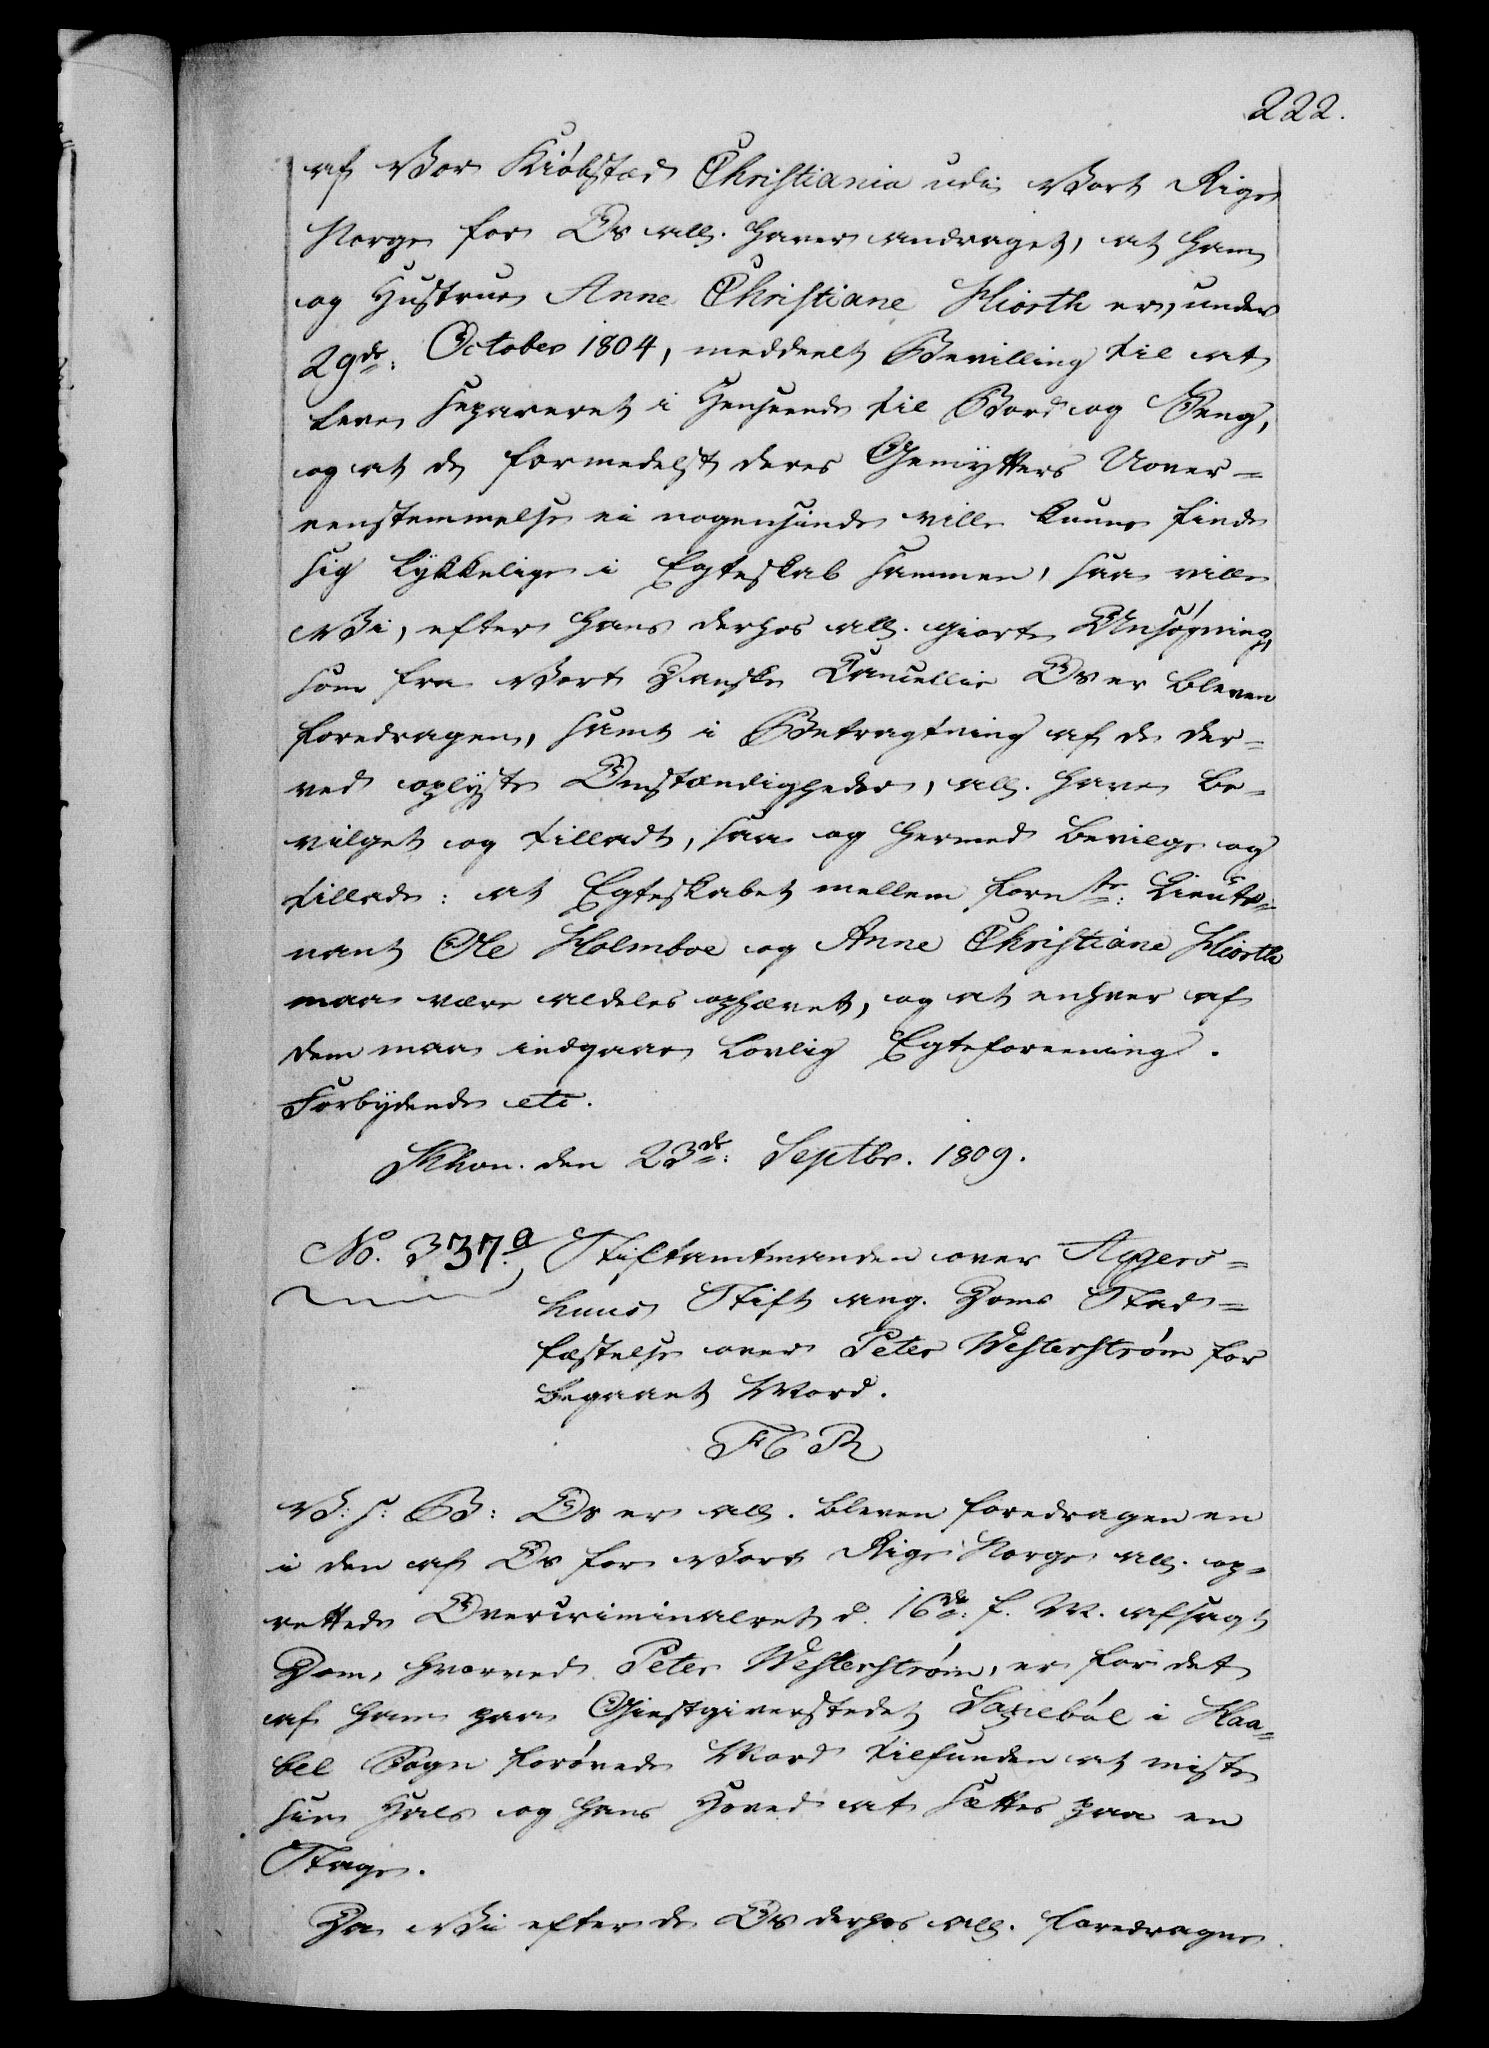 222.
af Vor Kiøbstad Christiania udi Vort Rige
Norge for Os all. haver andraget, at ham
og Hustrue Anne Christiane Hiorth er, under
29de: October 1804, meddeelt Bevilling til at
leve separeret i Henseende til Bord og Seng,
og at de formedelst deres Gemytters Uover=
eensstemmelse ei nogensinde ville kunne finde
sig lykkelige i Egteskab sammen, saa ville
Vi, efter hans derhos all. giorte Ansøgning,
som fra Vort Danske Cancellie Os er bleven
foredragen, samt i Betragtning af de der=
ved oplyste Omstændigheder, all. have be=
vilget og tilladt, saa og hermed bevilge og
tillade: at Egteskabet mellem fornte: Lieute=
nant Ole Holmboe og Anne Christiane Hiorth
maa være aldeles ophævet, og at enhver af
dem maa indgaae lovlig Egteforeening.
Forbydende etc.
Khvn. den 23de: Septbr. 1809.
No. 337.a Stiftamtmanden over Agers=
huus Stift ang. Doms Stad=
fæstelse over Peter Westerstrøm for
begaaet Mord.
F6R
V: s: G: Os er all. bleven foredragen en
i den af Os for Vort Rige Norge all. op=
rettede Overcriminalret d. 16de: f. M. afsagt
Dom, hvorved Peter Westerstrøm, er for det
af ham paa Giestgiverstedet i Haa=
bel Sogn forøvede Mord tilfunden at miste
sin Hals og hans Hoved at sættes paa en
Stage.
Da Vi efter de Os derhos all. foredragne